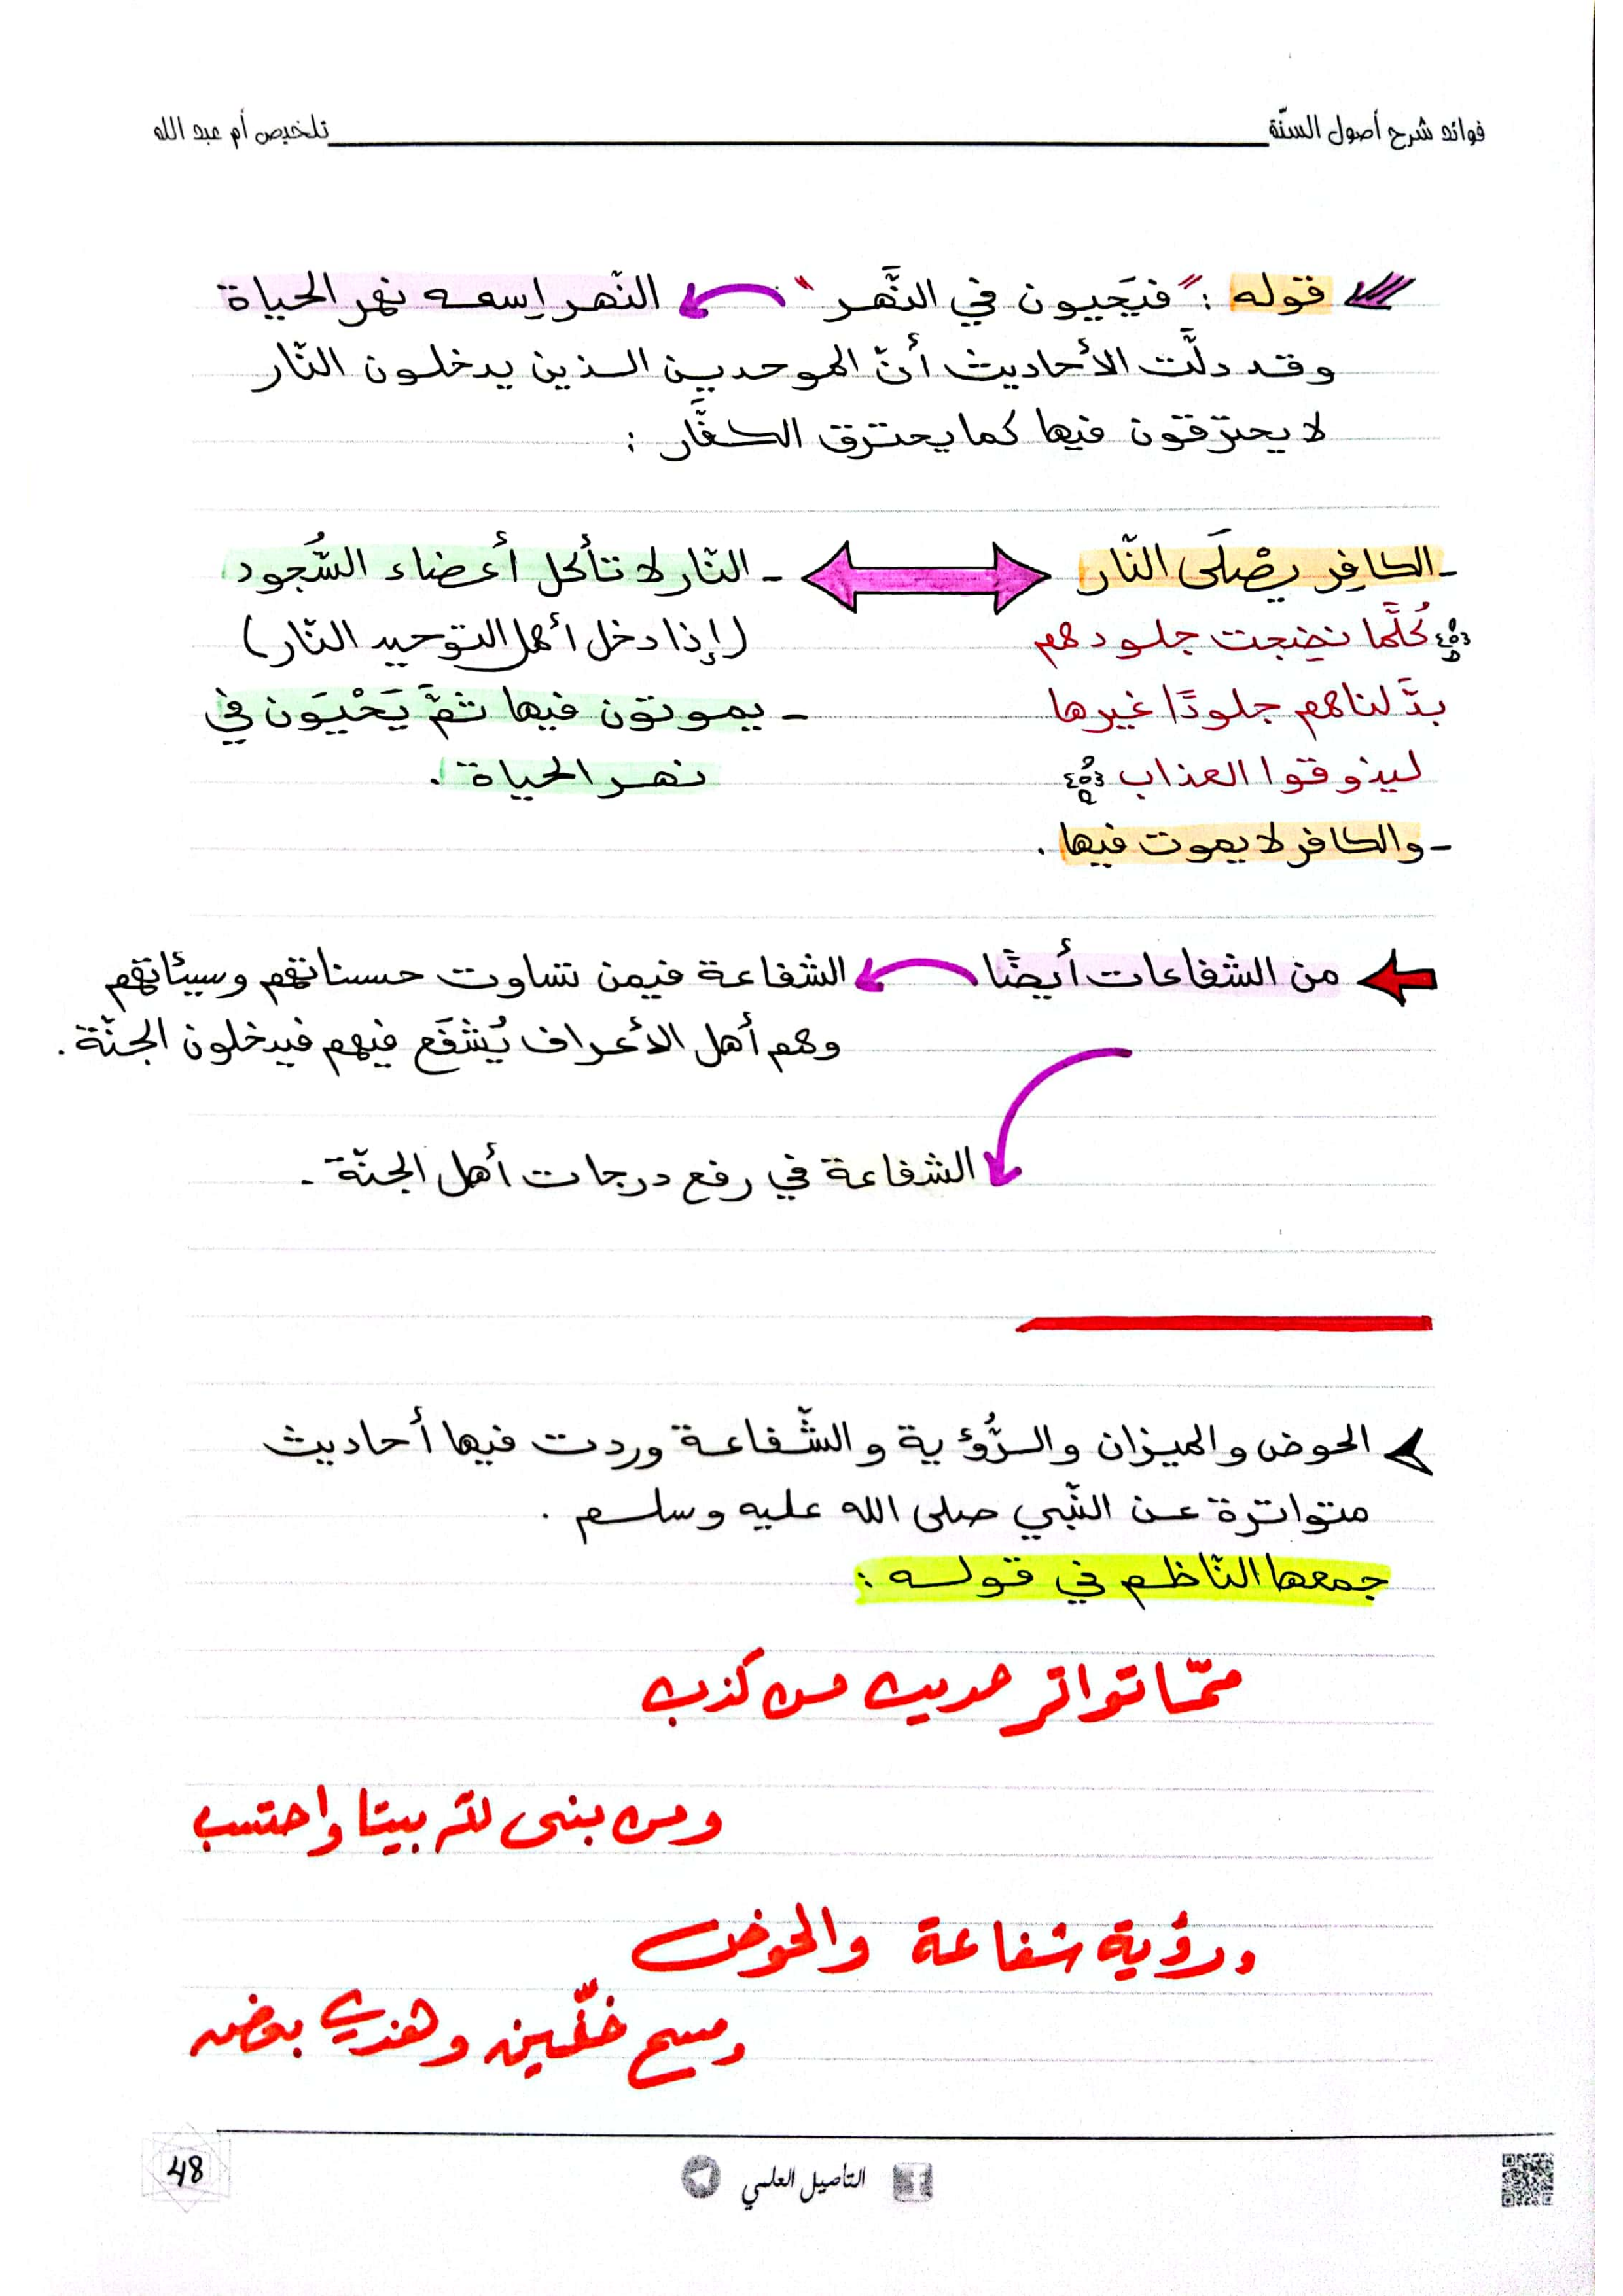 فوائد شرح أصول السنّة تلخيص أم عبد الله
قوله : "فيَحيون في النَّهر" النّهر إسمه نهر الحياة
وقد دلَّت الأحاديث أنّ الموحدين الذين يدخلون النّار
لا يحترقون فيها كما يحترق الكفَّار :
- الكافِر يصْلَى النّار
﴿كُلَّما نضِجت جلودهم
بدَّلناهم جلودًا غيرها
ليذوقوا العذاب﴾
- والكافر لا يموت فيها .
- النّار لا تأكل أعضاء السُّجود
(إذا دخل أهل التوحيد النّار)
- يموتون فيها ثمَّ يَحْيَون في
نهر الحياة .
من الشفاعات أيضًا الشفاعة فيمن تساوت حسناتهم وسيئاتهم
وهم أهل الأعراف يُشفَع فيهم فيدخلون الجنّة .
الشفاعة في رفع درجات أهل الجنّة .
الحوض والميزان والرُّؤية والشّفاعة وردت فيها أحاديث
متواترة عن النّبي صلى الله عليه وسلم .
جمعها النّاظم في قوله :
ممّا تواتر حديث من كذب
ومن بنى لله بيتا واحتسب
ورؤية شفاعة والحوض
ومسح خفّين وهذي بعض
48
التأصيل العلمي